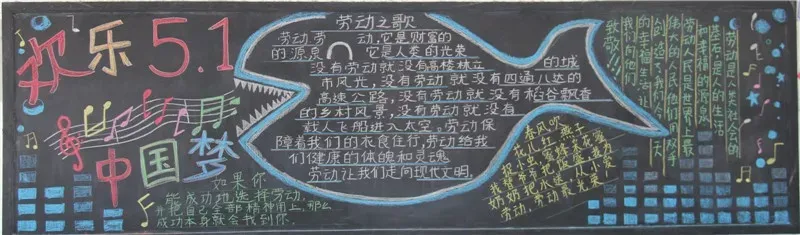 欢乐5.1
中国梦
如果你
能成功地选择劳动,
并把自己全部精神用上,那么
成功本身就会找到你.
劳动之歌
劳动,劳动,它是财富的
的源泉 它是人类的光荣
没有劳动就没有高楼林立的城
市风光,没有劳动就没有四通八达的
高速公路,没有劳动就没有稻谷飘香
的乡村风景,没有劳动就没有
载人飞船进入太空。劳动保
障着我们的衣食住行,劳动给我
们健康的体魄和灵魂
劳动让我们走向现代文明.
春风吹
花儿红 燕子
捉虫 蜜蜂采花蜜
我替爷爷把饭盛 我为
奶奶把水送 从小爱
劳动,劳动最光荣!
劳动是人类社会的
基石,是人们的生活
和幸福的源泉
劳动人民是世界上最
伟大的人民他们用双手
创造了我们今天
的幸福生活
我们向他们
致敬!!!